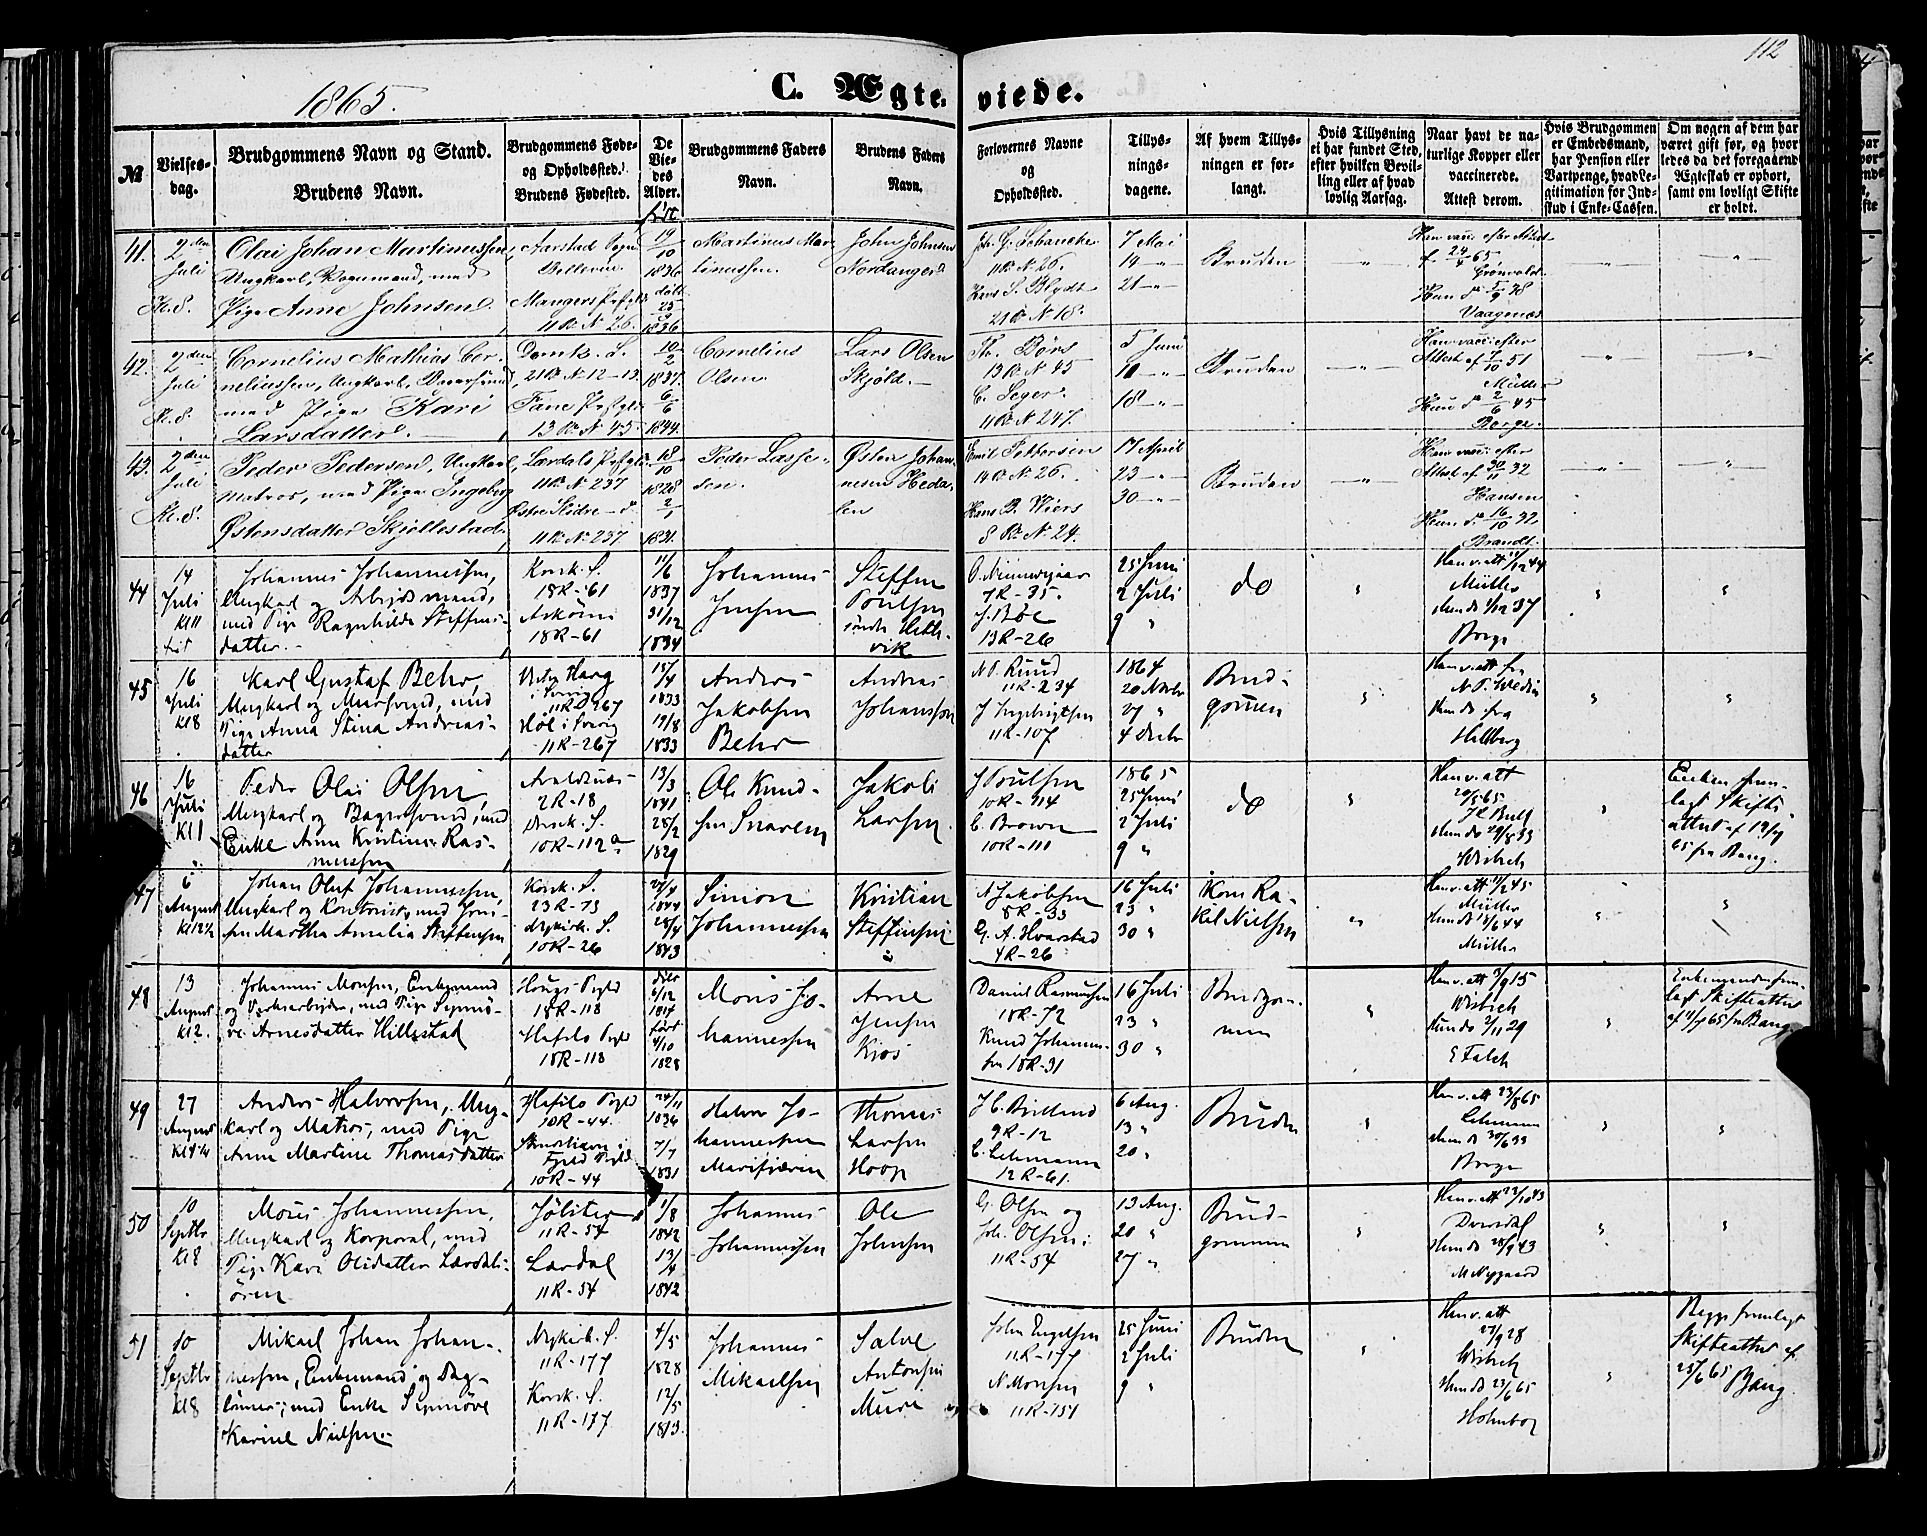 112
1865.
C. Ægteviede.
№
Vielsesdag.
Brudgommens Navn og Stand.
Brudens Navn.
Brudgommens Føde- og Opholdssted.
Brudens Fødested.
De Viedes Alder.
født
Brudgommens Faders Navn.
Brudens Faders Navn.
Forlovernes Navne og Opholdssted.
Tillysningsdagene.
Af hvem Tillysningen er forlangt.
Hvis Tillysning ei har fundet Sted, efter hvilken Bevilling eller af hvad lovlig Aarsag.
Naar havt de naturlige Kopper eller vaccinerede. Attest derom.
Hvis Brudgommen er Embedsmand, har Pension eller Vartpenge, hvad Legitimation for Indskud i Enke-Cassen.
Om nogen af dem har været gift før, og hvorledes da det foregaaende Ægteskab er ophørt, samt om lovligt Skifte er holdt.
41.
2den Juli
Kl. 8.
Olai Johan Martinussen,
Ungkarl, med
Pige Anne Johnsen.
Aarstad Sogn
Mangers
11 R. N. 26.
19/10 1836
25/9 1836
Martinus Martinussen.
John Johnsen
Nordanger
11 R. N. 26.
Hans S. Blydt
21 R. N. 18.
7 Mai
14 "
21 "
Bruden
Han vacc. efter Attest
af 24/4 65
Grønvold.
Vaagenes
42.
2den Juli
Kl. 8.
Cornelius Mathias Cornelius­sen, Ungkarl, Bagersvend
med Pige Kari
Larsdatter.
Domk. S.
21 R. N. 12-13
Fane
13 R. N. 45
10/2 1837
6/6 1844
Cornelius
Olsen.
Lars Olsen
Skjold.
Th. Børs
13 R. N. 45
C. Seger.
11 R. N. 247.
5 Juni
18
Bruden
Han vacc. efter
Attest af 7/10 51
Müller
Hun do 2/6 45
Berge.
43.
2den Juli
Kl. 8.
Peder Pedersen, Ungkarl,
Matros, med Pige Ingeborg
Østensdatter Skjøllestad.
Lærdals
11 R. N. 237
Østre Slidre
11 R. N. 237
18/10 1828
2/1 1831
Peder Lassesen.
Østen Johannesen Hedalen
Emil Pettersen
14 R. N. 26.
Hans B. Wiers
8 R. N. 24.
17 April
23 "
30 "
Bruden
Han vacc. efter
Attest af 30/11 32
Hansen
Hun do 16/10 32
Brandt.
44
14 Juli
Kl 11
Johannes Johannessen,
Ungkarl og Arbejdsmand,
med Pige Ragnhilde Steffensdatter.
Korsk. S.
18R-61
Askøen
18R-61
11/6 1837
31/12 1834
Johannes
Jensen
Steffen
Poulsen
7R-35.
J. Bøe
13R-26
25 Juni
2 Juli
9 "
do
Han v. att 1/12 44
Müller
Hun do 1/12 37
Berge
45
16 Juli
Kl 8
Karl Gustaf Behr,
Ungkarl og Mursvend, med
Pige Anna Stina Andreasdatter
11R-267
11R-267
15/4 1833
19/8 1833
Anders
Jakobsen
Behr
Andreas
Johansson
N P. Ruud
11R-234
J Ingebrigtsen
11R-107
1864
20 Novbr
27 "
4 Decbr
Brudgommen
Han v. att fra
Hun do fra
Hellberg
46
16 Juli
Kl 1
Peder Olai Olsen,
Ungkarl og Bagersvend, med
Enke Anne Kristine Rasmussen
Avaldsnes
2R-18
Domk. S.
10R-112a
13/3 1841
28/2 1829
Ole Knudsen Snaren
Jakob
Larsen
J Poulsen
10R-114
C. Brown
10R-111
1865
25 Juni
2 Juli
9 "
do
Han v. att
20/5 65
J C Bull
Hun do 29/8 33
Wisbech
Enken fremlagt Skifteattest af 19/4
65 fra Bang.
47
6 August
Kl 12½
Johan Oluf Johannessen,
Ungkarl og Kontorist, med Jomfru Martha Amalia Steffensen
Korsk. S.
23R-73
Nykirk. S.
10R-26
27/4 1844
28/4 1843
Simon
Johannessen
Kristian
Steffensen
A Jakobsen
8R-33
G. A. Hvarstad
4R-26
16 Juli
23 "
30 "
Kone Rakel Nielsen
Han v. att 11/2 45
Müller
Hun do 18/6 44
Müller
48
13 August
Kl 2.
Johannes Monsen, Enkemand
og Værkarbejder, med Pige Synnøve Arnesdatter Hillestad
Hougs Pgld
18R-118
Hafslo Pgld
18R-118
døbt 6/12 1814
født 4/10 1828
Mons Johannessen
Arne
Jensen
Kjos
Daniel Rasmussen
18R-72
Knud Johannessen 18R-31
16 Juli
23 "
30 "
Brudgommen
Han v. att 3/9 15
Wisbech
Hun do 2/11 29
E Falch
Enkemanden fremlagt Skifteattest
af 11/7 65 fra Bang
49
27 August
Kl 4¼
Anders Halvorsen, Ungkarl og Matros, med Pige
Anne Martine Thomasdatter
Hafslo Pgld
10R-44.
Fjeld Pgld
10R-44
24/11 1836
7/7 1831
Halvor Johannessen
Marifjæren
Thomas
Larsen
Hoop
9R-12
C. Lehmann
12R-61.
6 Aug.
13 "
20 "
Bruden
Han v. att 23/8 65
Lehmann
Hun do 30/6 33
Berge
50
10 Septbr
Kl 8
Mons Johannessen,
Ungkarl og Korporal, med
Pige Kari Olsdatter Lærdalsøren
Jølster
11R-54
Lærdal
11R-54
1/8 1842
13/4 1842
Johannes
Johannessen
Ole
Johnsen
G. Olsen og
Joh. Olsen i
11R-54
13 Aug.
20 "
27 "
Brudgommen
Han v. att 23/10 43
Hun do 28/9 43
M Nygaard
51
10 Septbr
Kl 8
Mikael Johan Johannessen, Enkemand og Daglønner, med Enke Synnøve
Karine Nielsen.
Nykirk. S.
11R-177
Korsk. S.
11R-177
4/5 1828
12/5 1813
Johannes
Mikaelsen
Salve
Antonsen
Mure
John Engelsen
11R-177
N Monsen
11R-151
25 Juni
2 Juli
9 "
Bruden
Han v. att
27/9 28
Wisbech
Hun do 23/6 65
Holmboe
Begge fremlagt
Skifteattest af
25/6 65 Bang.